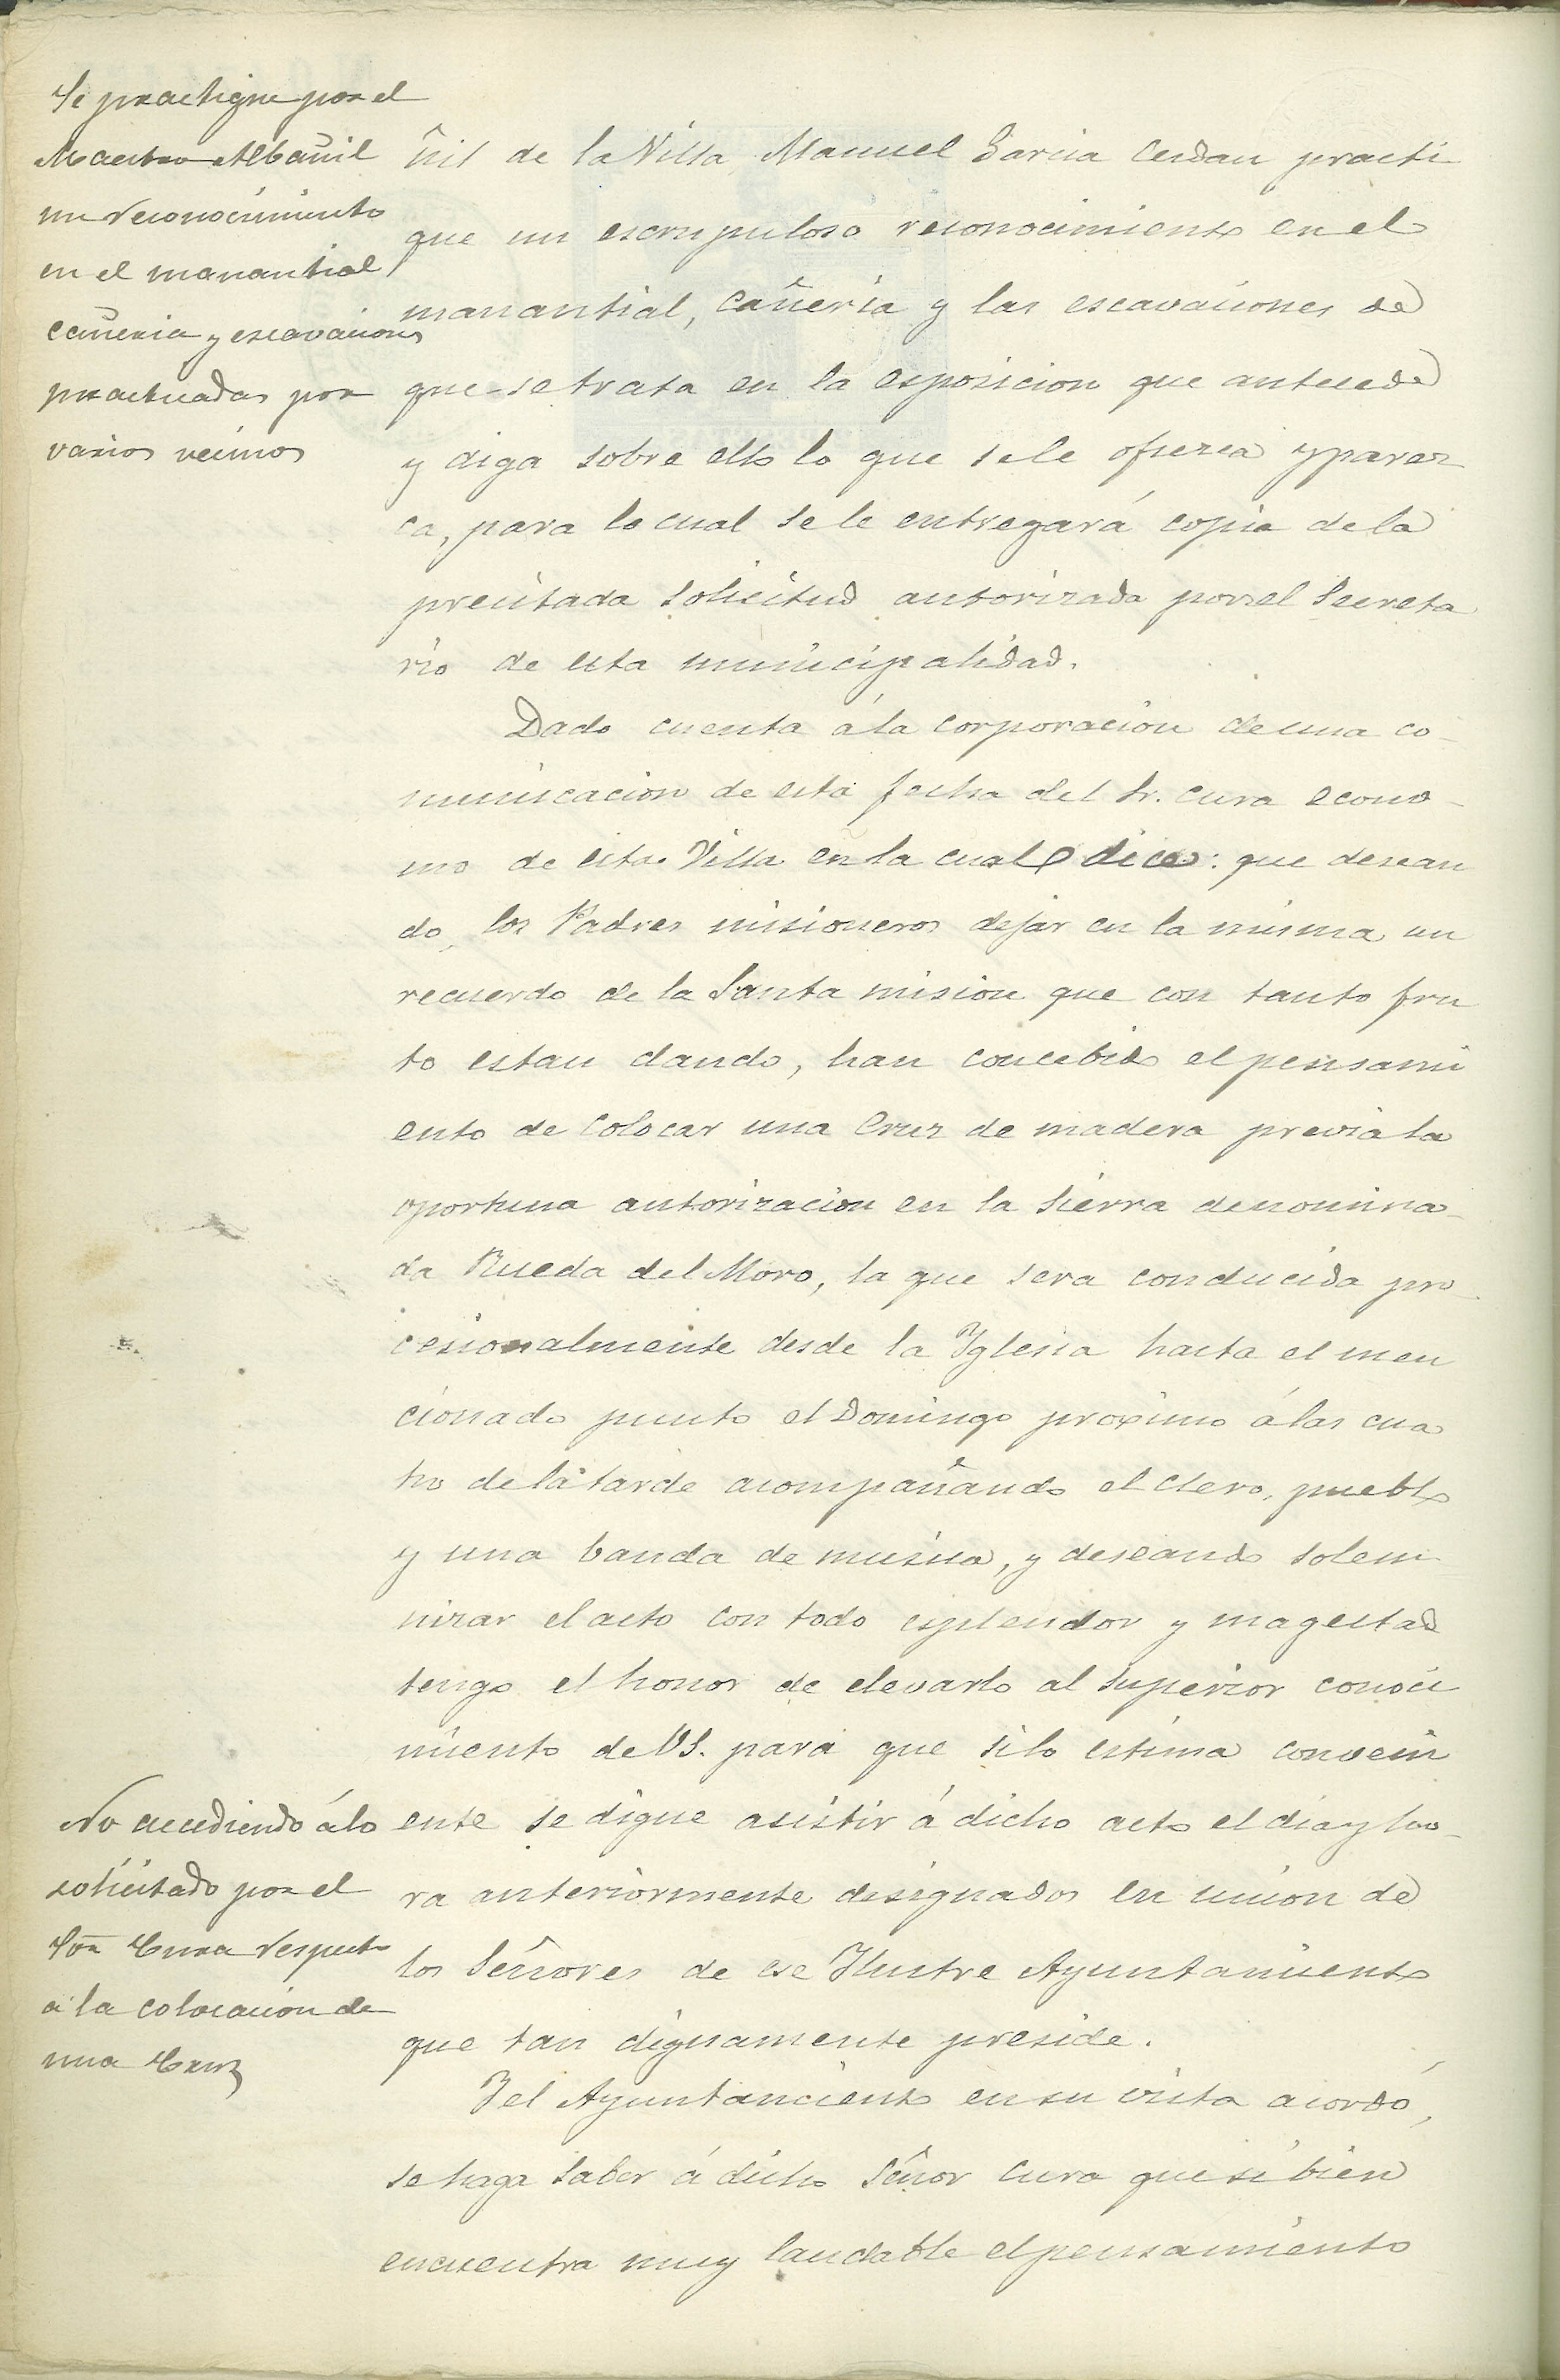 Se practique por el
Maestro Albañil
un reconocimiento
en el manantial
cañeria y escavaciones
practicadas por
varios vecinos
ñil de la Villa Manuel Garcia Cerdan practi
que un escrupuloso reconocimiento en el
manantial, cañeria y las escavaciones de
que se trata en la esposicion que antecede
y diga sobre ello lo que se le ofrezca y parez
ca, para lo cual se le entregará copia de la
precitada solicitud autorizada por el Secreta
rio de esta municipalidad.
Dado cuenta á la corporacion de una co-
municacion de esta fecha del Sr. Cura econo-
mo de esta Villa en la cual dice: que desean
do, los Padres misioneros dejar en la misma un
recuerdo de la Santa mision que con tanto fru
to estan dando, han concebido el pensami
ento de colocar una Cruz de madera previa la
oportuna autorizacion en la Sierra denomina-
da Rueda del Moro, la que sera conducida pro-
cesionalmente desde la Yglesia hasta el men
cionado punto el Domingo proximo á las cua
tro de la tarde acompañando el Clero, pueblo
y una banda de musica, y deseando solem
nizar el acto con todo esplendor y magestad
tengo el honor de elevarlo al superior conoci
miento de VS. para que si lo estima conveni
ente se digne asistir á dicho acto el dia y ho-
ra anteriormente designados en union de
los Señores de ese Ylustre Ayuntamiento
que tan dignamente preside.
No accediendo á lo
solicitado por el
Sor Cura respecto
a la colocacion de
una Cruz
Y el Ayuntamiento en su vista acordó,
se haga saber á dicho Señor Cura que si bien
encuentra muy laudable el pensamiento